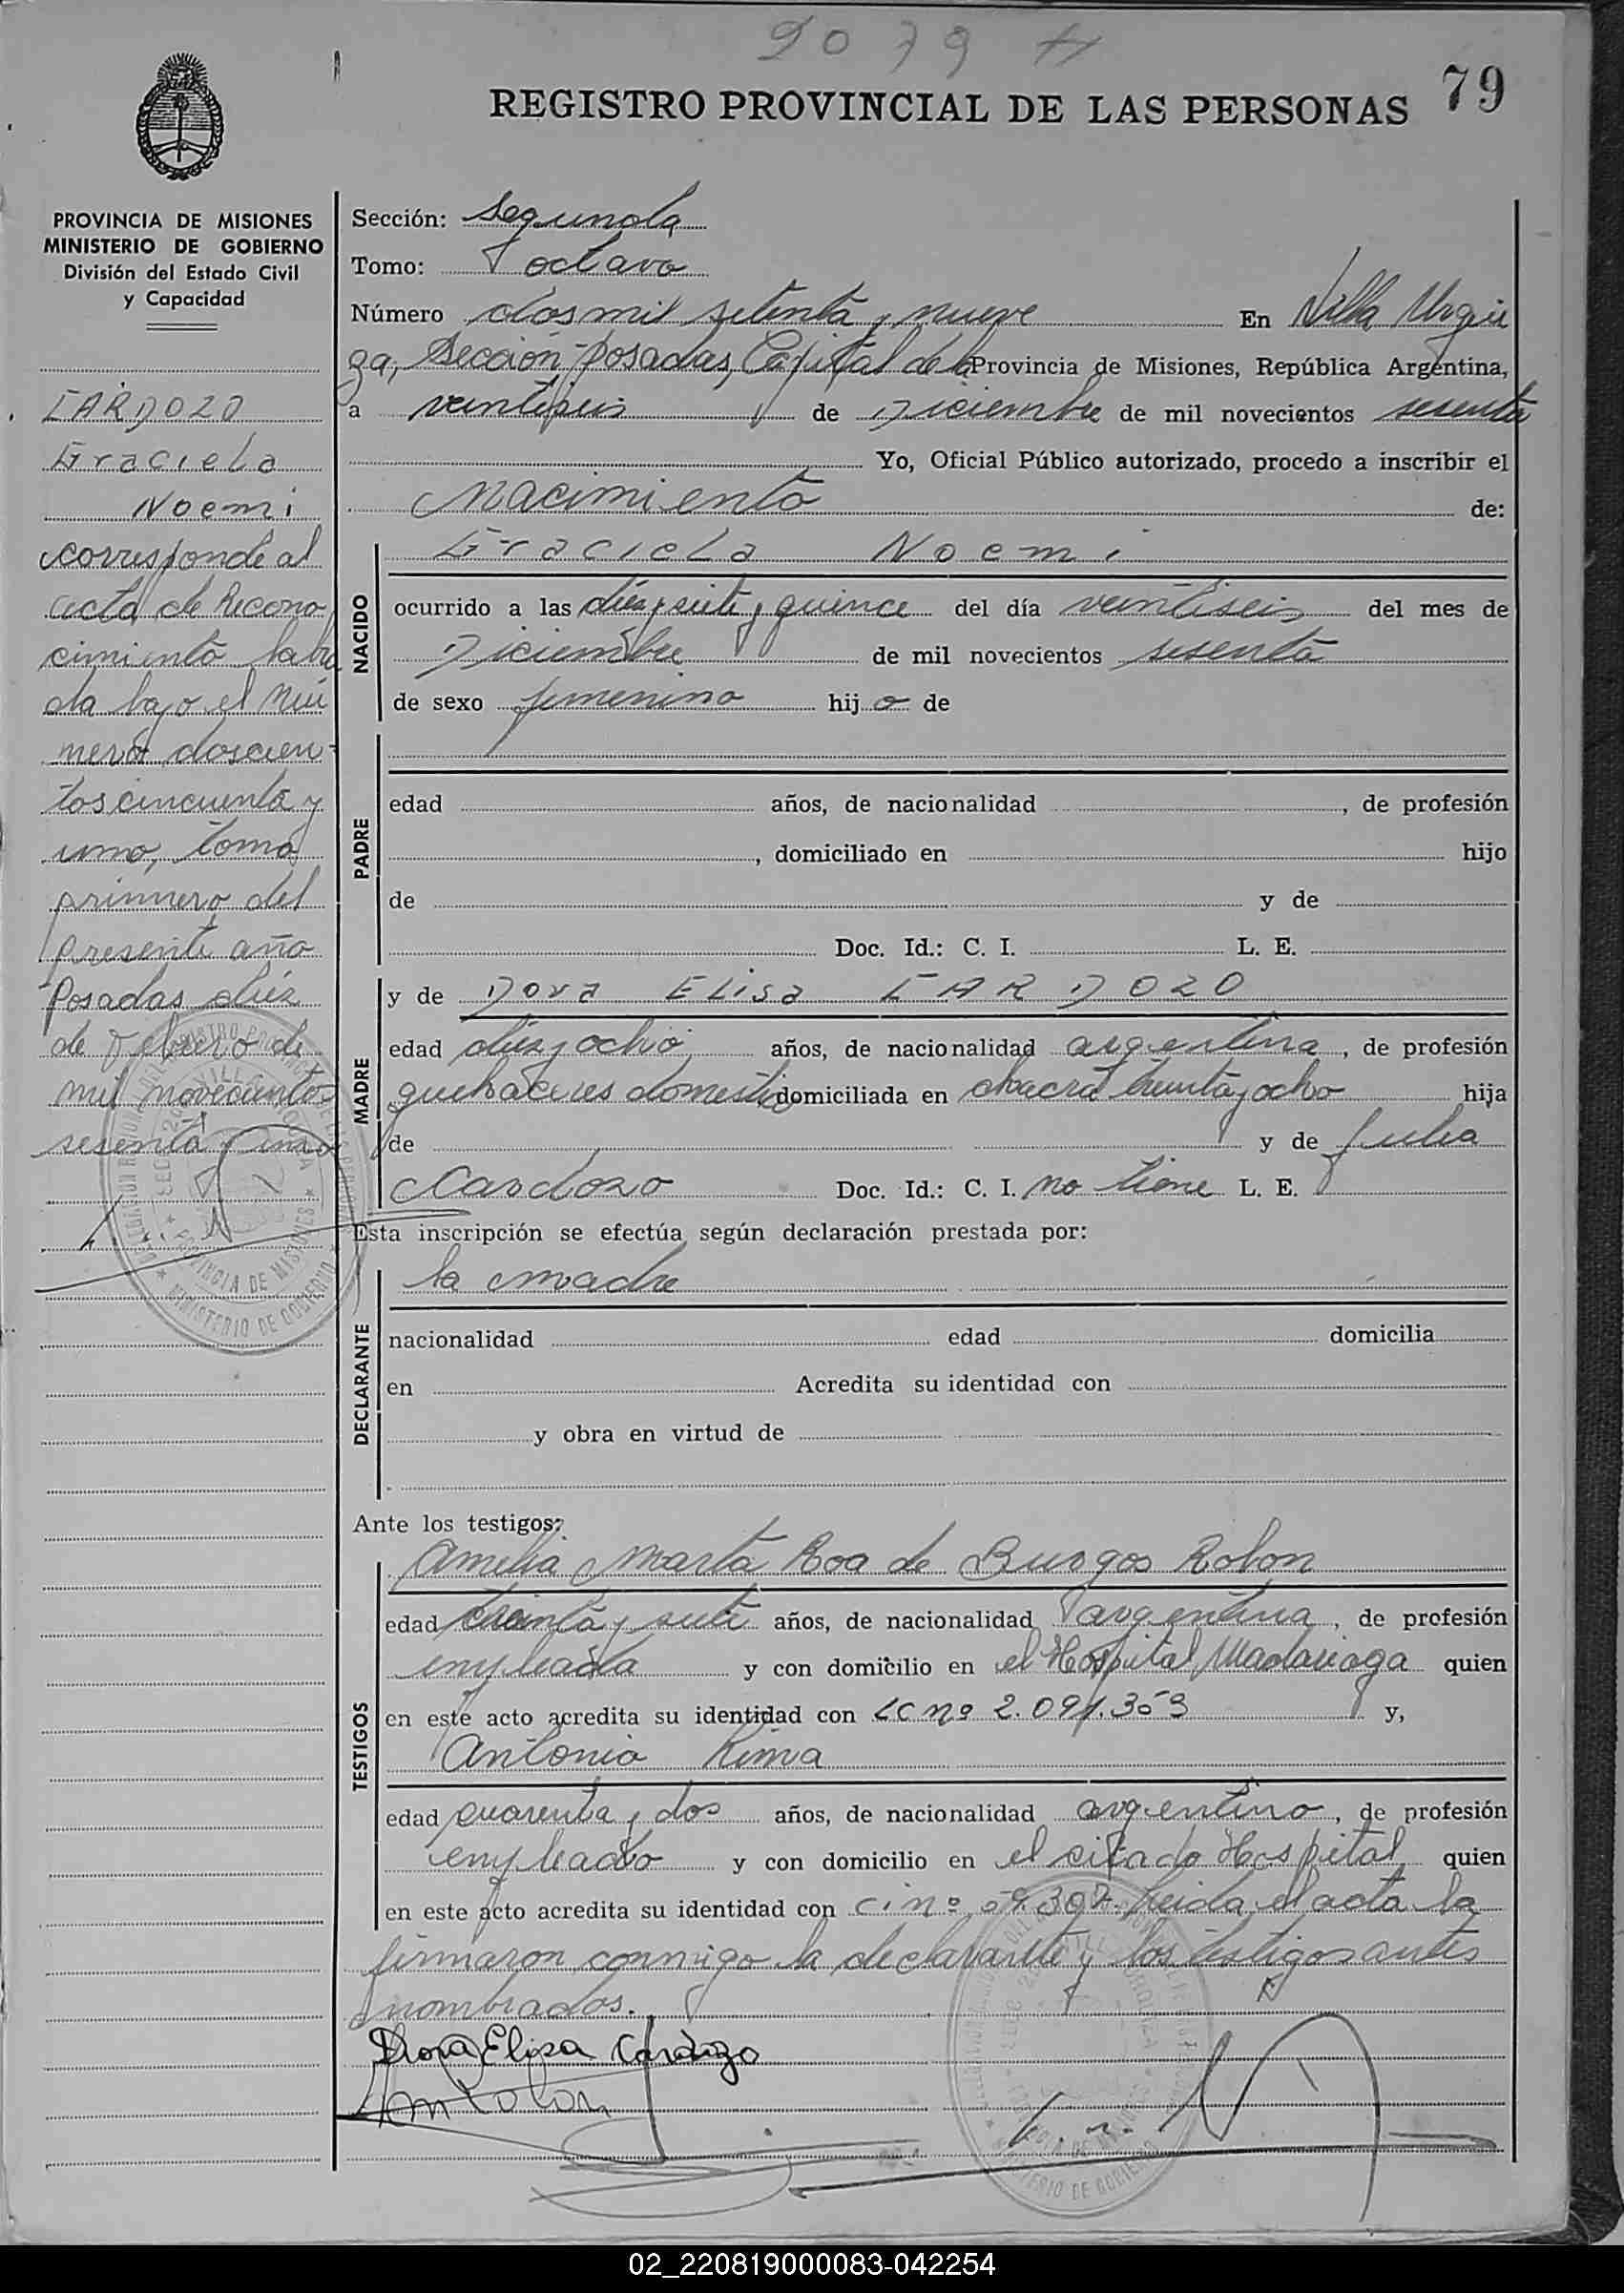 2079
79
REGISTRO PROVINCIAL DE LAS PERSONAS
PROVINCIA DE MISIONES
MINISTERIO DE GOBIERNO
División del Estado Civil
y Capacidad
CARDOZO
Graciela
Noemi
corresponde al
acta de Recono
cimiento labra
da bajo el Nú
mero doscien
tos cincuenta y
uno, tomo
primero del
presente año
Posadas diez
de Febrero de
mil novecientos
sesenta y uno
Sección: Segunda
Tomo: octavo
Número dos mil setenta y nueve En Villa Urqui
za, Sección Posadas, Capital de la Provincia de Misiones, República Argentina,
a veintiseis de Diciembre de mil novecientos sesenta
Yo, Oficial Público autorizado, procedo a inscribir el
Nacimiento de:
NACIDO
Graciela Noemi
ocurrido a las diez y siete y quince del día veintiseis del mes de
Diciembre de mil novecientos sesenta
de sexo femenino hij a de
PADRE
edad años, de nacionalidad , de profesión
, domiciliado en hijo
de y de
Doc. Id.: C. I. L. E.
MADRE
y de Dora Elisa CARDOZO
edad diez y ocho años, de nacionalidad argentina, de profesión
quehaceres domestic domiciliada en chacra treinta y ocho hija
de y de Julia
Cardozo Doc. Id.: C. I. no tiene L. E.
Esta inscripción se efectúa según declaración prestada por:
DECLARANTE
la madre
nacionalidad edad domicilia
en Acredita su identidad con
y obra en virtud de
Ante los testigos:
TESTIGOS
Amelia Marta Roa de Burgos Robon
edad treinta y siete años, de nacionalidad argentina, de profesión
empleada y con domicilio en el Hospital Madariaga quien
en este acto acredita su identidad con LC nº 2.091.353 y,
Antonio Rima
edad cuarenta y dos años, de nacionalidad argentino, de profesión
empleado y con domicilio en el citado Hospital quien
en este acto acredita su identidad con ci nº 59.307. Leida el acta la
firmaron conmigo la declarante y los testigos antes
nombrados.
Dora Elisa Cardozo
02_220819000083-042254